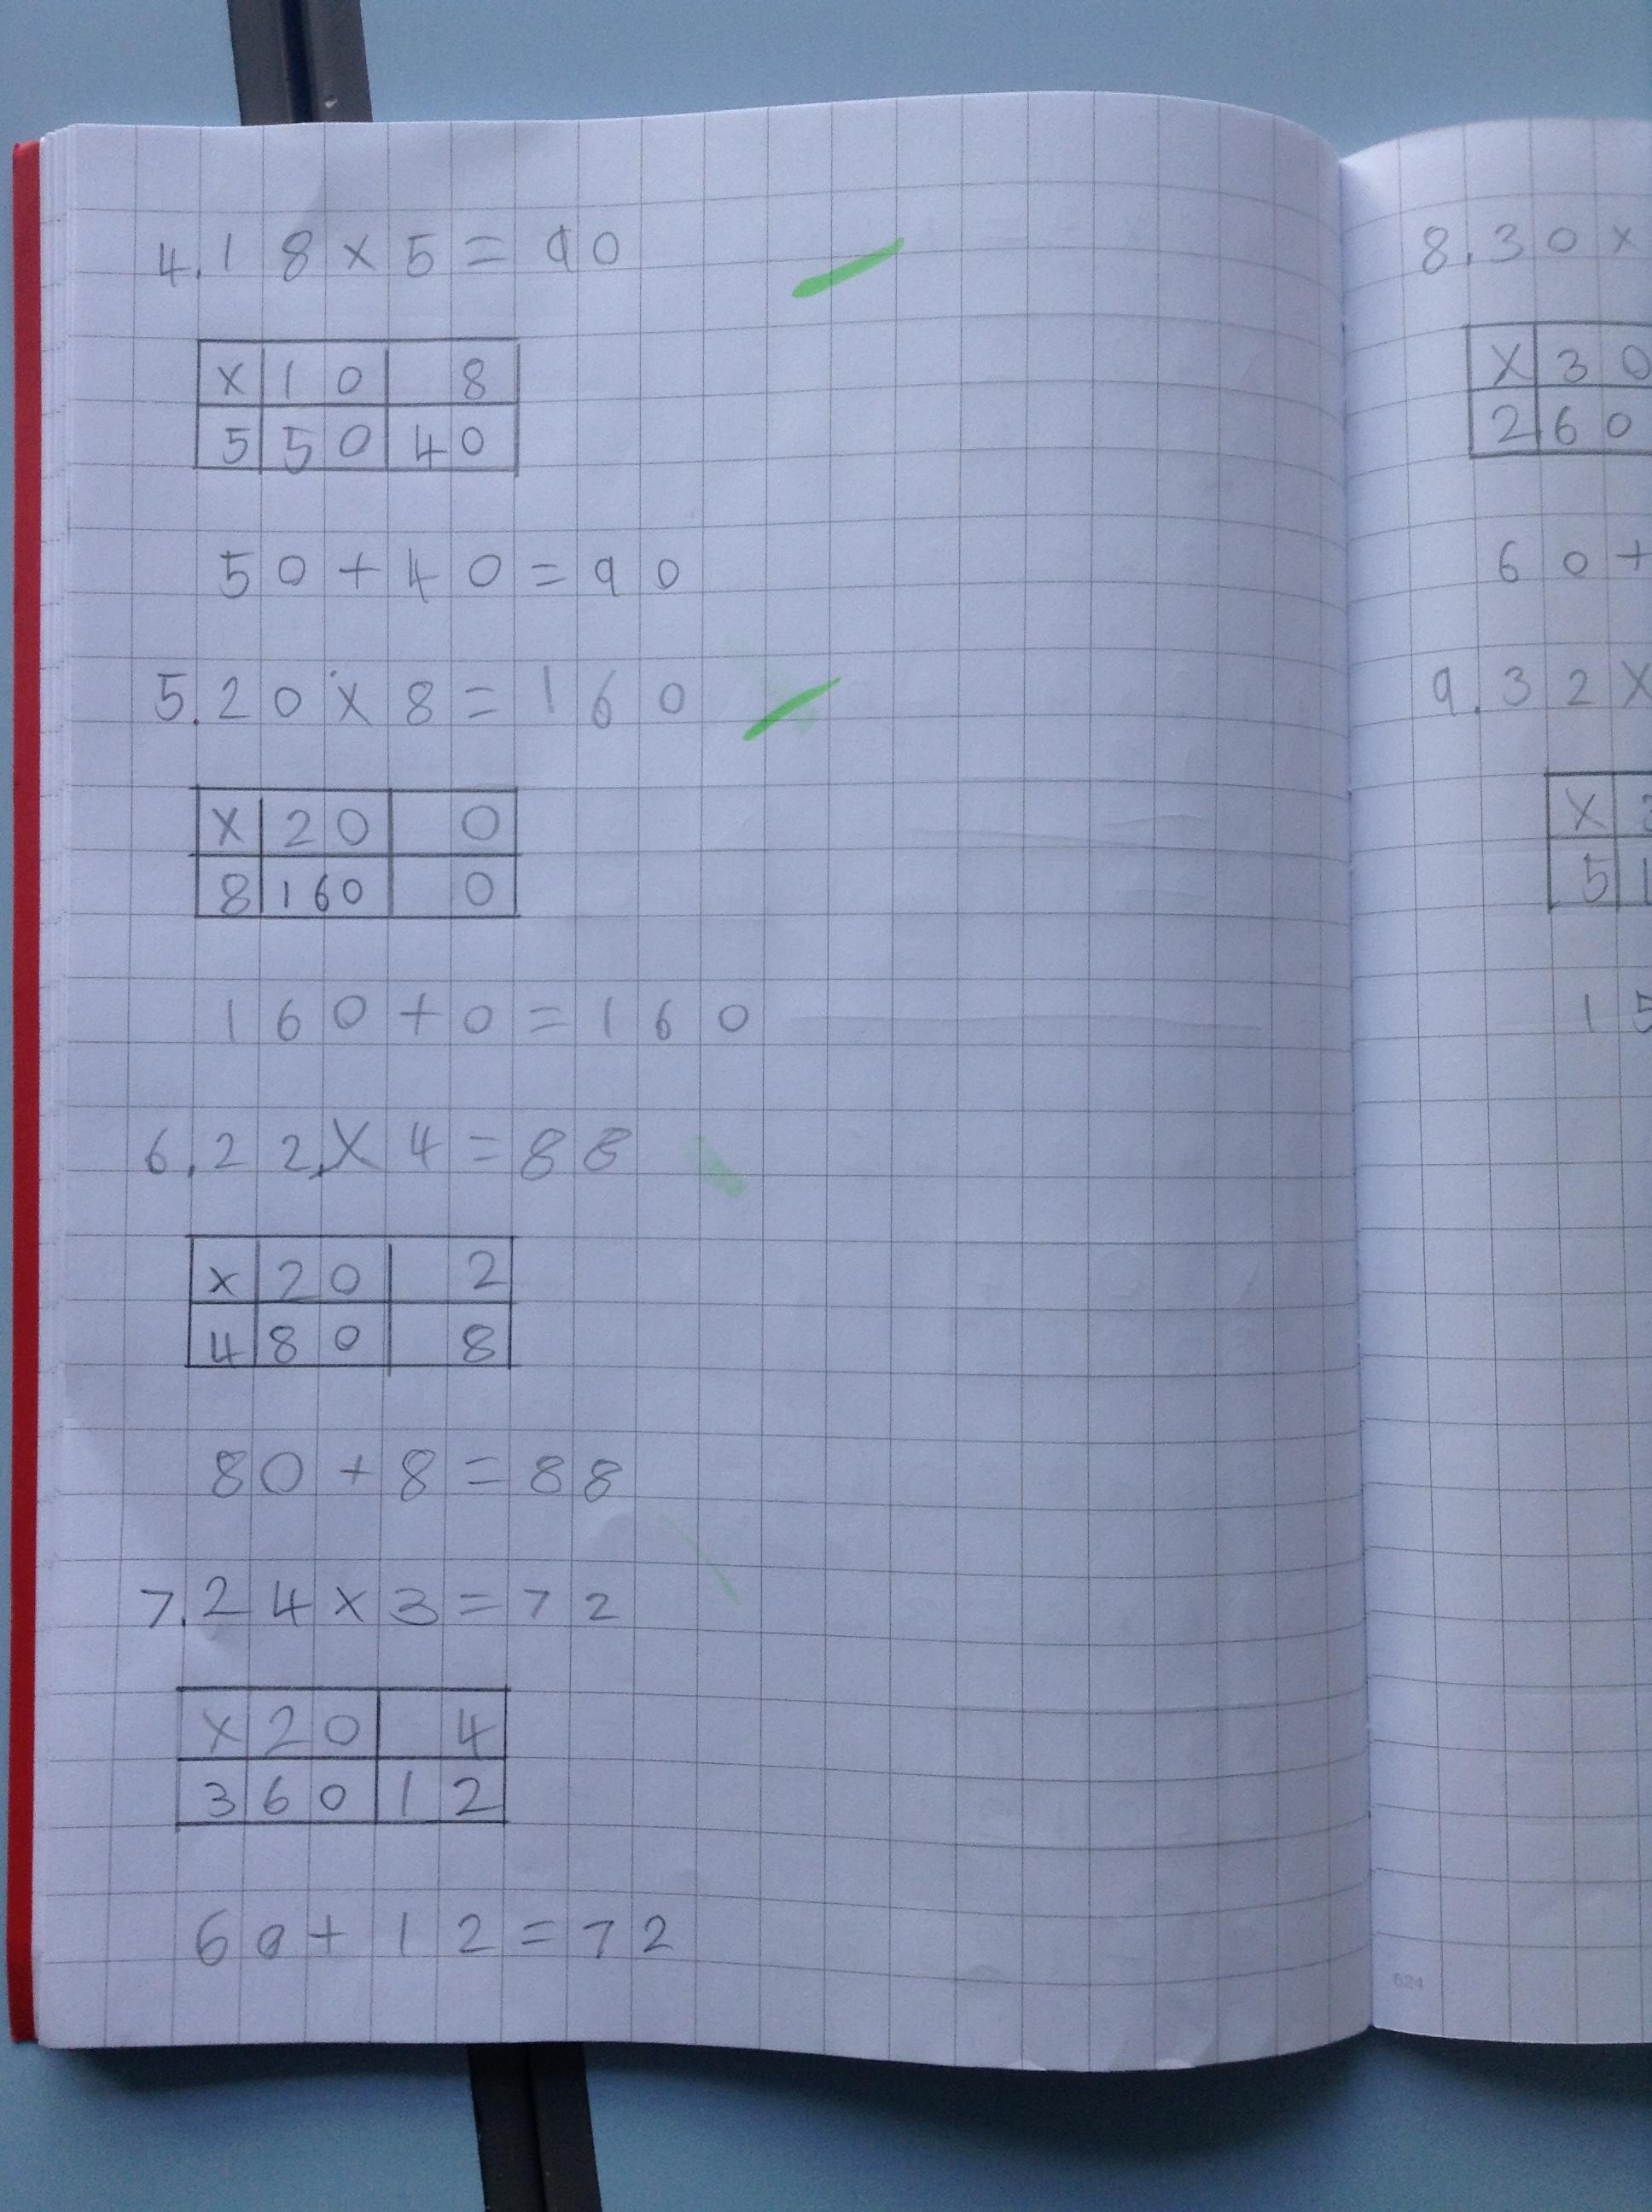 4. 18 × 5 = 90
× 10 8
5 50 40
50 + 40 = 90
5. 20 × 8 = 160
× 20 0
8 160 0
160 + 0 = 160
6. 22 × 4 = 88
× 20 2
4 80 8
80 + 8 = 88
7. 24 × 3 = 72
× 20 4
3 60 12
60 + 12 = 72
8. 30 ×
× 30
2 60
60 +
9. 32 ×
×
5 1
15
624